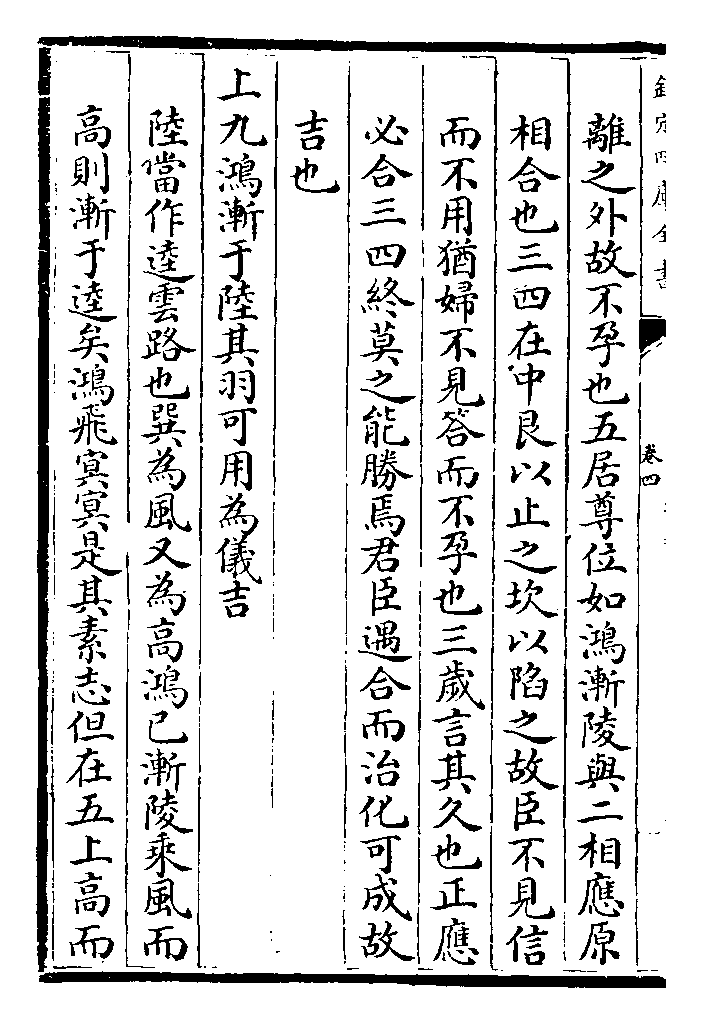 欽定四庫全書
卷四
離之外故不孕也五居尊位如鴻漸陵與二相應原
相合也三四在中艮以止之坎以陷之故臣不見信
而不用猶婦不見答而不孕也三歲言其久也正應
必合三四終莫之能勝焉君臣遇合而治化可成故
吉也
上九鴻漸于陸其羽可用為儀吉
陸當作逵雲路也巽為風又為高鴻已漸陵乘風而
高則漸于逵矣鴻飛冥冥是其素志但在五上高而